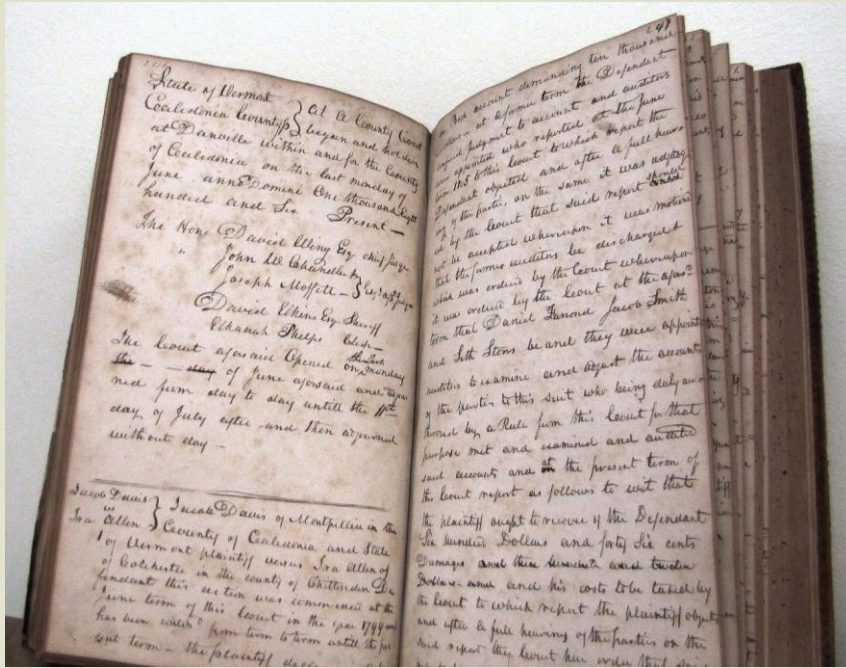 State of Vermont
Caledonia County ss } At A County Court
begun and holden
at Danville within and for the County
of Caledonia on the last monday of
June anno Domini One thousand Eight
hundred and Six Present —
The Hone David Wing Esq chief Judge
" John W Chandler &
Joseph Moffett — } Esqs Judges
David Elkins Esq Sheriff
Elkanah Phelps Clerk —
The Court aforesaid Opened on the last monday
the — day of June aforesaid and adjour
ned from day to day untill the 11th
day of July after and then adjourned
without day —
Jacob Davis
vs
Ira Allen } Jacob Davis of Montpellier in the
County of Caledonia and State
of Vermont plaintiff versus Ira Allen of
of Colchester in the county of Chittenden De
fendant this action was commenced at the
June term of this Court in the year 1799 and
has been contind from term to term untill the pre
sent term — the plaintiff
47
on Book account demanding ten thousand
dollars — at a former term the Defendant
judgment to account and auditors
were appointed who reported at the June
term 1805 to this Court to which report the
Defendant objected and after a full hear
ing of the parties on the same it was adjudg
ed by the Court that said report should
not be accepted whereupon it was motioned
that the former auditors be discharged &
which was ordered by the Court whereupon
it was ordered by the Court at the aforesd
term that Daniel Jacob Smith
and Seth Stons be and they were appointed
auditors to examine and adjust the accounts
of the parties to this suit who being duly au
thorised by a Rule from this Court for that
purpose met and examined and audited
said accounts and at the present term of
the Court report as follows to wit that
the plaintiff ought to recover of the Defendant
Six hundred Dollars and forty Six cents
Damages and
Dollars and and his costs to be taxed by
the Court to which report the plaintiff object
and after a full hearing of the parties on the
said report they Court